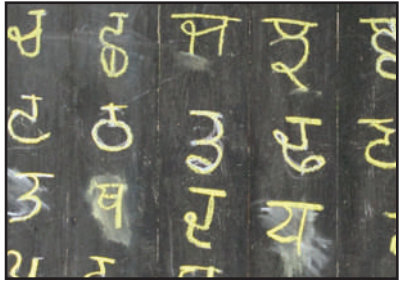 ਚ ਛ ਜ ਝ ਞ
ਟ ਠ ਡ ਢ ਣ
ਤ ਥ ਦ ਧ